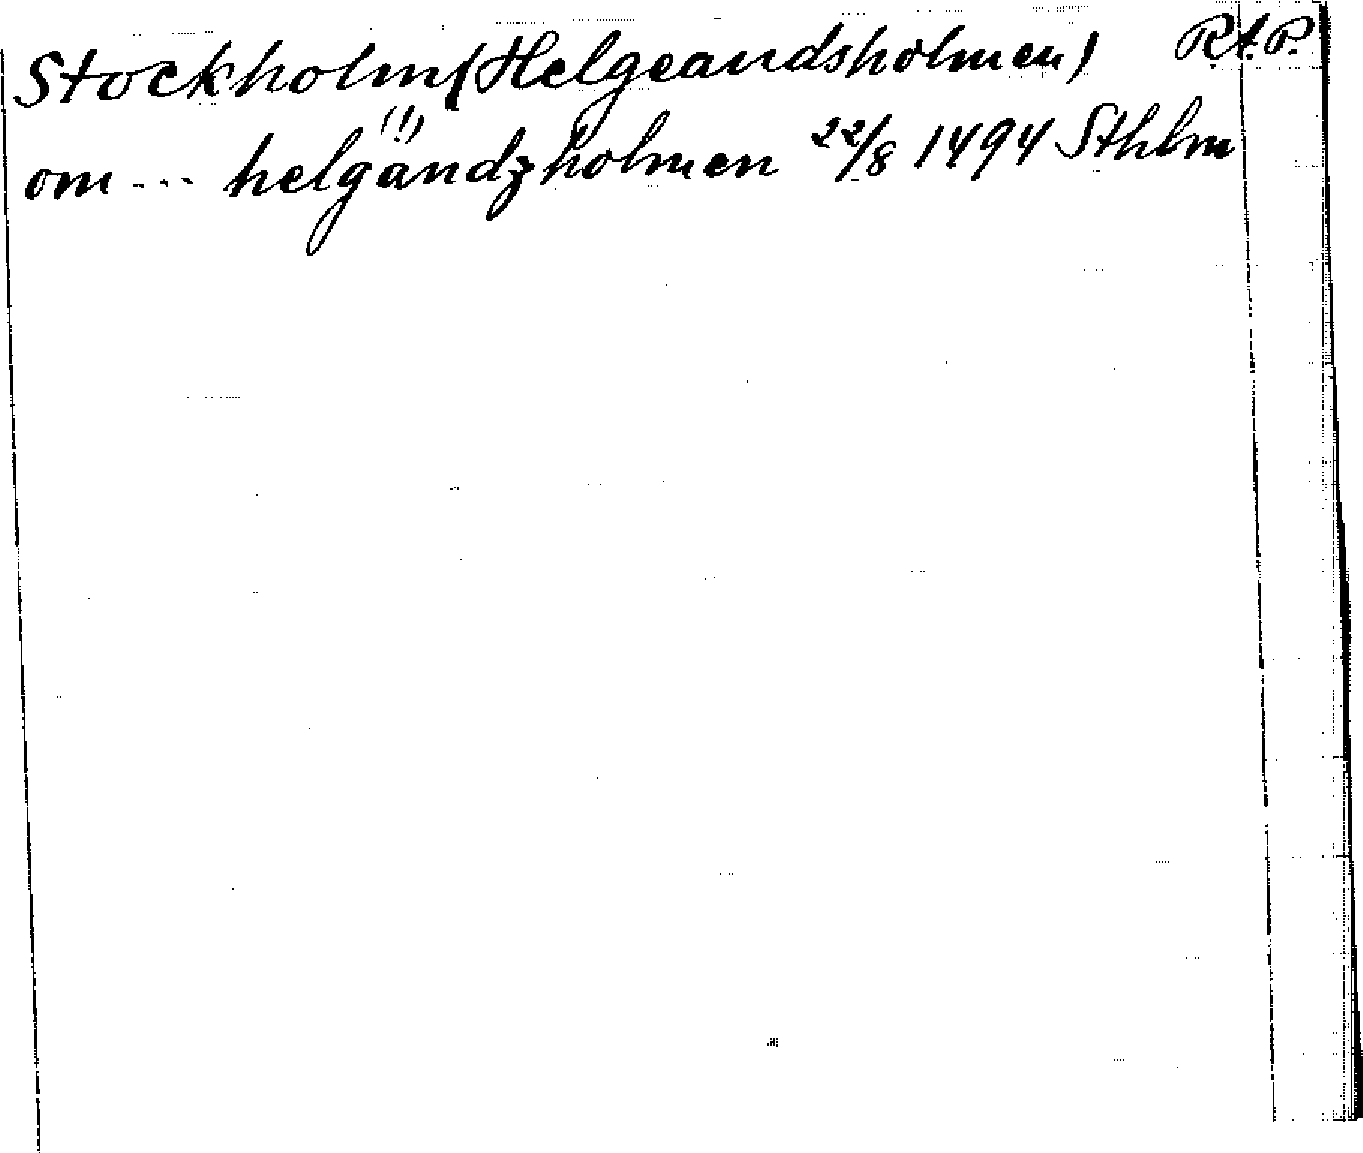 Stockholm (Helgeandsholmen) R.A.P.
om --- helgandzholmen (!) 22/8 1494 Sthlm